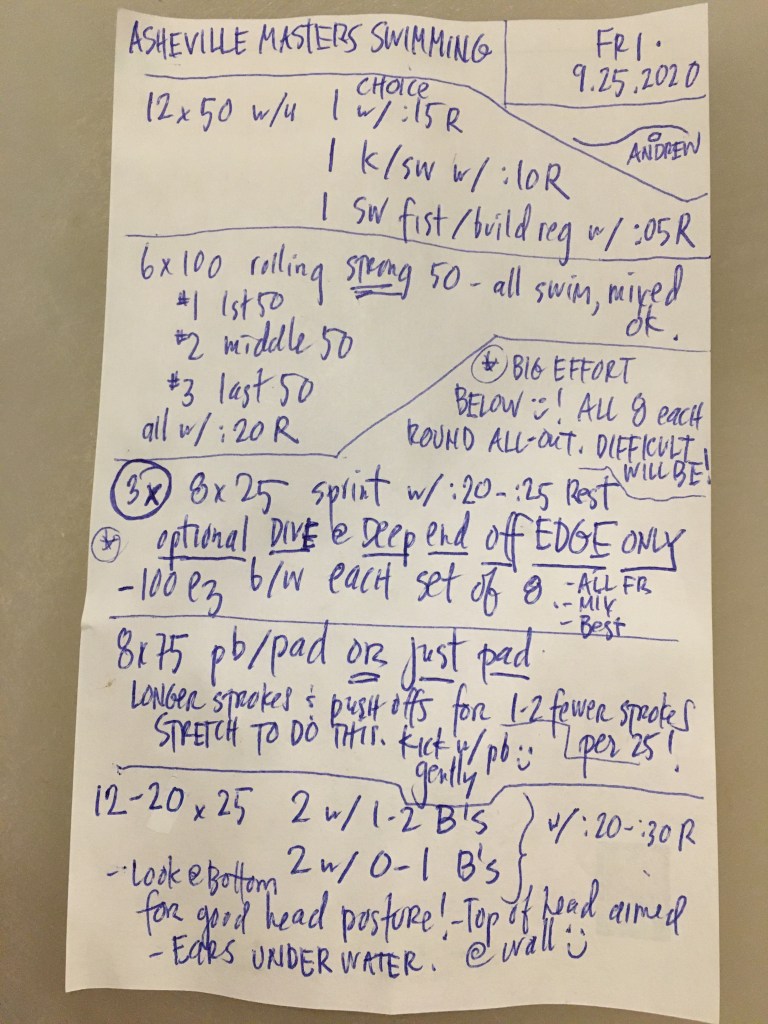 ASHEVILLE MASTERS SWIMMING
FRI.
9.25.2020
ANDREW
12x50 w/u 1 CHOICE w/ :15R
1 K/SW w/ :10R
1 SW fist/build reg w/ :05R
6x100 rolling strong 50 - all swim, mixed
ok.
#1 1st 50
#2 middle 50
#3 last 50
all w/ :20 R
* BIG EFFORT
BELOW !! ALL 8 each
ROUND ALL-OUT. DIFFICULT
WILL BE!
3x 8x25 sprint w/ :20-:25 Rest
* optional DIVE @ Deep end off EDGE ONLY
-100 ez b/w each set of 8 - ALL FR
- MIX
- Best
8x75 pb/pad OR just pad
LONGER STROKES & push offs for 1-2 fewer strokes
STRETCH TO DO THIS. Kick w/ pb :) per 25!
gently
12-20 x 25 2 w/ 1-2 B's } w/ :20-:30 R
2 w/ 0-1 B's
- Look @ Bottom
for good head posture! - Top of head aimed
- EARS UNDER WATER. @ wall :)